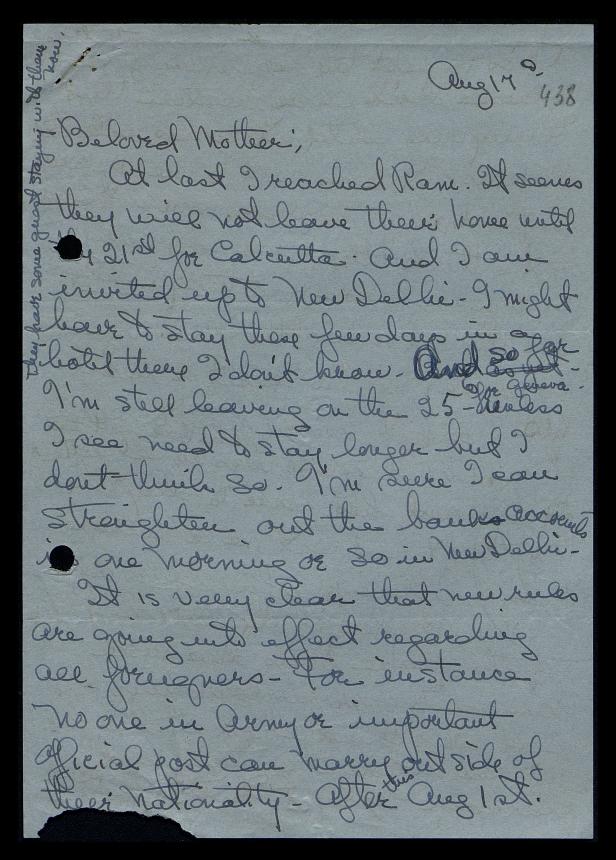 Aug 17
438
Beloved Mother;
At last I reached Ram. It seems
they will not leave their home until
the 21st for Calcutta. And I am
invited up to New Delhi - I might
have to stay these few days in a
hotel there I don't know. And so far
I'm still leaving on the 25 - for Geneva - unless
I see need to stay longer but I
dont think so. I'm sure I can
straighten out the bank accounts
in one morning or so in New Delhi -
It is very clear that new rules
are going into effect regarding
all foreigners - For instance
no one in Army or important
official post can marry outside of
their nationality - after this Aug 1st.
they have some guest staying with them
now.